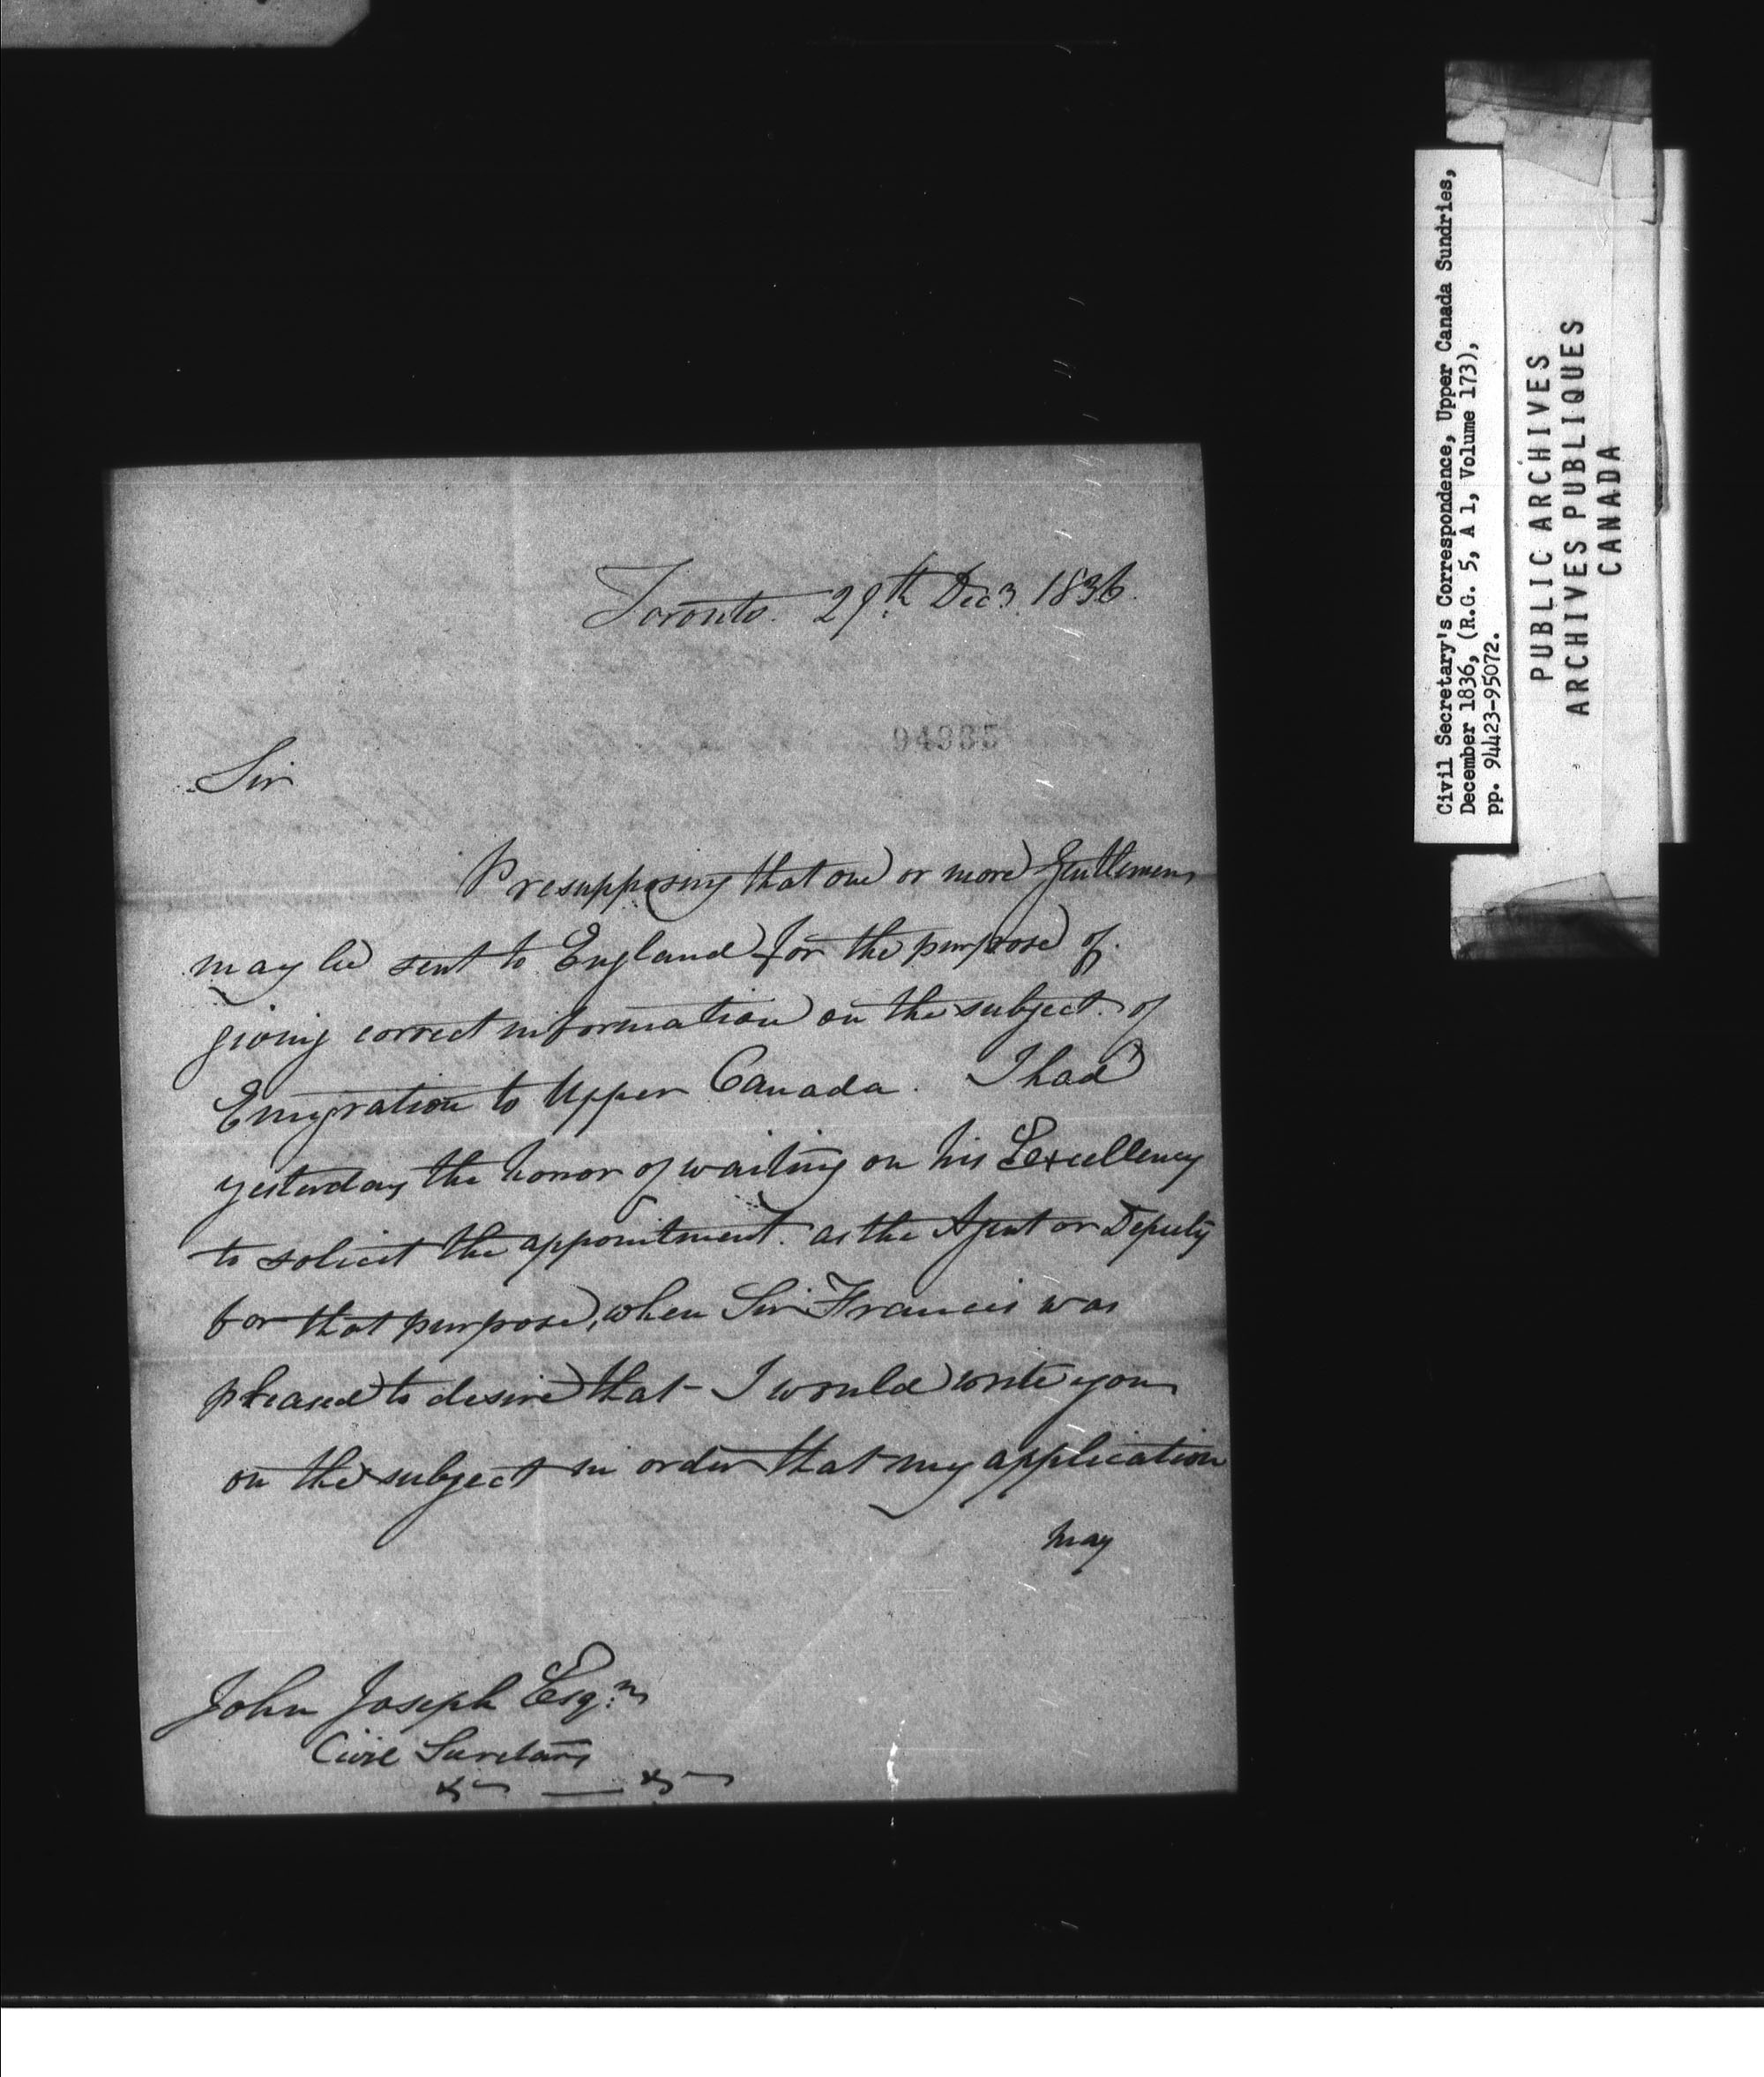 Toronto. 29th Decr. 1836.
Sir
Presupposing that one or more Gentlemen
may be sent to England for the purpose of
giving correct information on the subject of
Emigration to Upper Canada. I had
yesterday the honor of waiting on his Excellency
to solicit the appointment. as the Agent or Deputy
for that purpose, when Sir Francis was
pleased to desire that I would write you
on the subject in order that my application
may
John Joseph Esqre
Civil Secretary
Civil Secretary's Correspondence, Upper Canada Sundries,
December 1836, (R.G. 5, A 1, Volume 173),
pp. 94423-95072.
PUBLIC ARCHIVES
ARCHIVES PUBLIQUES
CANADA